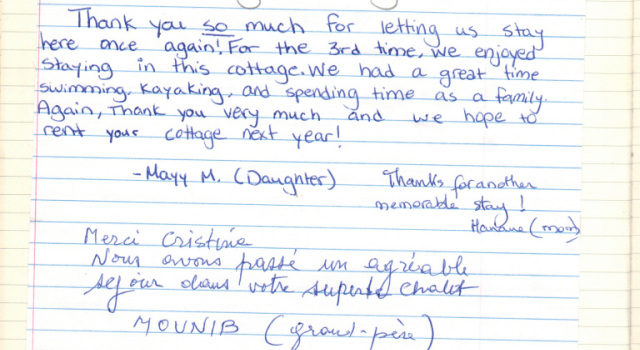 Thank you so much for letting us stay
here once again! For the 3rd time, we enjoyed
staying in this cottage. We had a great time
swimming, kayaking, and spending time as a family.
Again, Thank you very much and we hope to
rent your cottage next year!
- Mayy M. (Daughter)
Thanks for another
memorable stay!
Hanane (mom)
Merci Cristine
Nous avons passé un agréable
séjour dans votre superbe chalet
MOUNIB (grand-père)